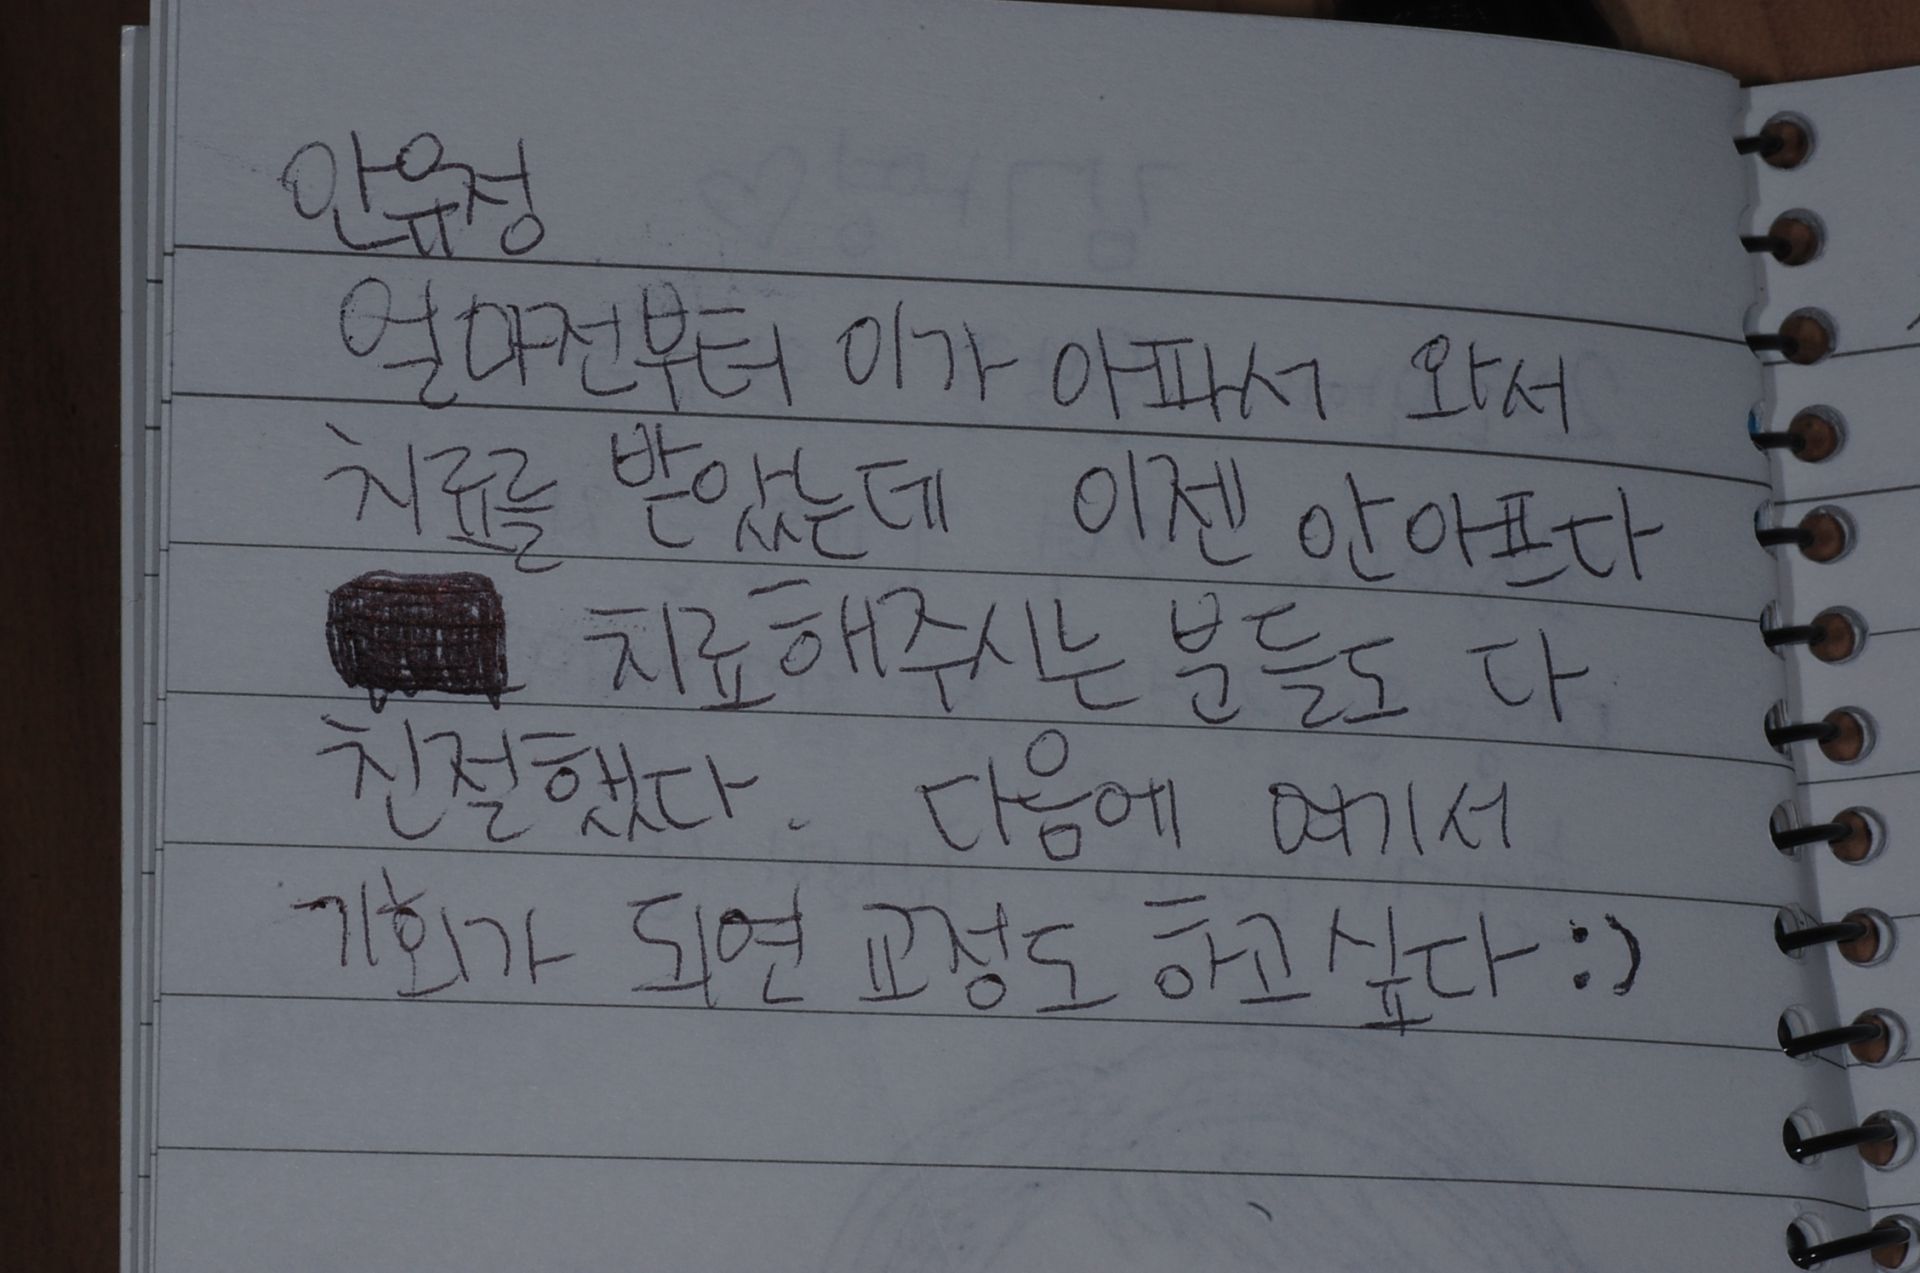 안유정
얼마전부터 이가 아파서 와서
치료를 받았는데 이젠 안아프다
치료해주시는 분들도 다
친절했다. 다음에 여기서
기회가 되면 교정도 하고싶다 :)